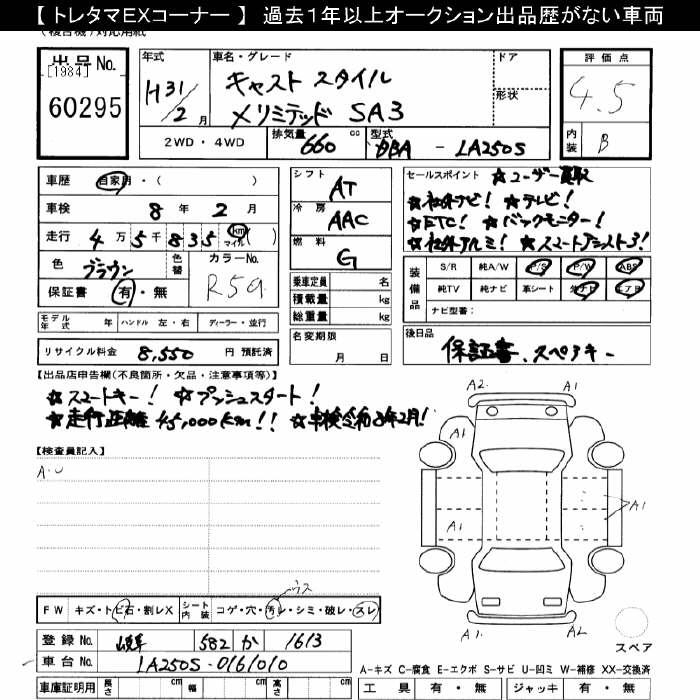 【 トレタマEXコーナー 】 過去1年以上オークション出品歴がない車両
出品No.
[1984]
60295
年式
H31/2月
車名・グレード
キャスト スタイル
メリミテッド SA3
ドア
形状
評価点
4.5
内装 B
2WD・4WD 排気量 660 cc 型式 DBA - LA250S
車歴 自家用・( )
車検 8年 2月
走行 4万5千835 km マイル ( )
色 ブラウン 色替 カラーNo. R59
保証書 有・無
シフト AT
冷房 AAC
燃料 G
乗車定員 名
積載量 kg
総重量 kg
セールスポイント ☆ユーザー買取
☆社外ナビ! ☆テレビ!
☆ETC! ☆バックモニター!
☆社外アルミ! ☆スマートアシスト3!
装備品 S/R 純A/W P/S P/W ABS
純TV 純ナビ 革シート エアB
ナビ型番:
モデル年式 年 ハンドル 左・右 ディーラー・並行
リサイクル料金 8,550 円 預託済
名変期限 月 日
後日品
保証書、スペアキー
【出品店申告欄(不良箇所・欠品・注意事項等)】
☆スマートキー! ☆プッシュスタート!
☆走行距離 45,000km!! ☆車検令和8年2月!
【検査員記入】
A・U
A2 A1
A1
A1
A1
A1 A2
スペア
FW キズ・トビ石・割レX シート内装 コゲ・穴・汚レ・シミ・破レ・スレ
登録No. 岐阜 582 か 1613
車台No. LA250S-0161010
車庫証明用 長さ cm 幅 cm 高さ cm
A-キズ C-腐食 E-エクボ S-サビ U-凹ミ W-補修 XX-交換済
工具 有・無 ジャッキ 有・無